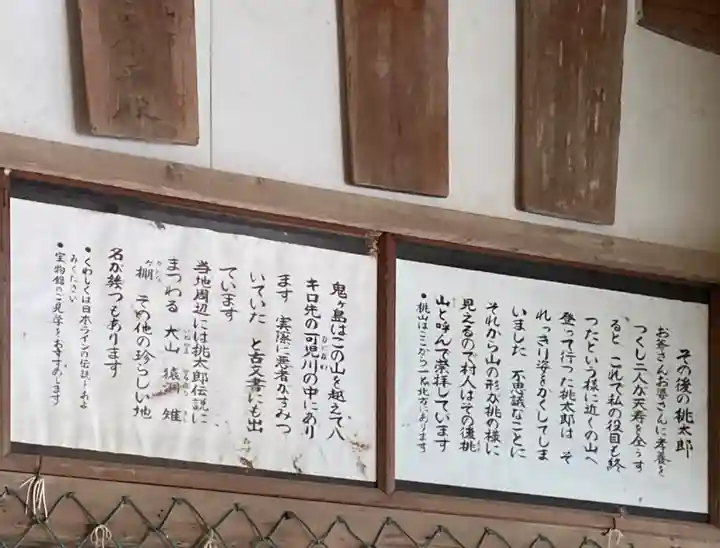 その後の桃太郎
お爺さんお婆さんに孝養を
つくし二人が天寿を全うす
ると これで私の役目も終
ったという様に近くの山へ
登って行った桃太郎は そ
れっきり姿をかくしてしま
いました 不思議なことに
それから山の形が桃の様に
見えるので村人はその後桃
山と呼んで崇拝しています
●桃山はここから一粁北方にあります
鬼ヶ島はこの山を越えて八
キロ先の可児川の中にあり
ます 実際に悪者がすみつ
いていた と古文書にも出
ています
当地周辺には桃太郎伝説に
まつわる 犬山 猿洞 雉
ケ棚 その他の珍らしい地
名が幾つもあります
●くわしくは日本ラインの伝説しおよ
みください
●宝物館のご見学をおすすめします